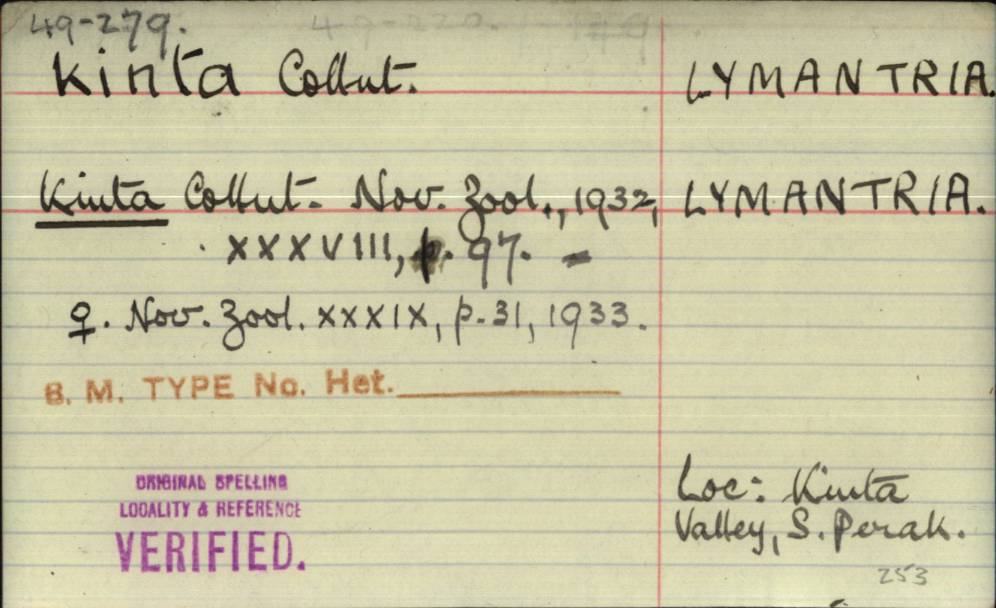 49-279.
kinta Collnt. LYMANTRIA.
Kinta Collnt. Nov. Zool., 1932, LYMANTRIA.
XXXVIII, p. 97. -
♀. Nov. Zool. XXXIX, p. 31, 1933.
B. M. TYPE No. Het.
ORIGINAL SPELLING
LOCALITY & REFERENCE
VERIFIED.
Loc: Kinta
Valley, S. Perak.
253